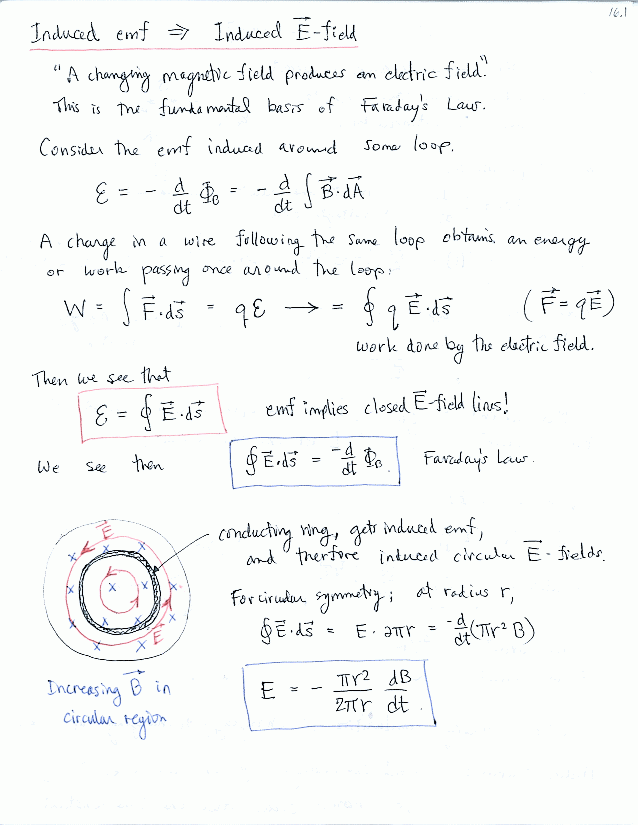 16.1
Induced emf ⇒ Induced E⃗-field
"A changing magnetic field produces an electric field."
This is the fundamental basis of Faraday's Law.
Consider the emf induced around some loop.
ℰ = - d/dt Φ_B = - d/dt ∫ B⃗·dA⃗
A change in a wire following the same loop obtains an energy
or work passing once around the loop:
W = ∫ F⃗·ds⃗ = qℰ ⟶ = ∮ q E⃗·ds⃗ (F⃗ = qE⃗)
work done by the electric field.
Then we see that
ℰ = ∮ E⃗·ds⃗ emf implies closed E⃗-field lines!
We see then ∮ E⃗·ds⃗ = -d/dt Φ_B Faraday's Law.
conducting ring, gets induced emf,
and therfore induced circular E⃗-fields.
For circular symmetry; at radius r,
∮ E⃗·ds⃗ = E · 2πr = -d/dt (πr² B)
E = - πr²/2πr dB/dt.
E⃗
x x x x x x x x x x x
E⃗
Increasing B⃗ in
circular region